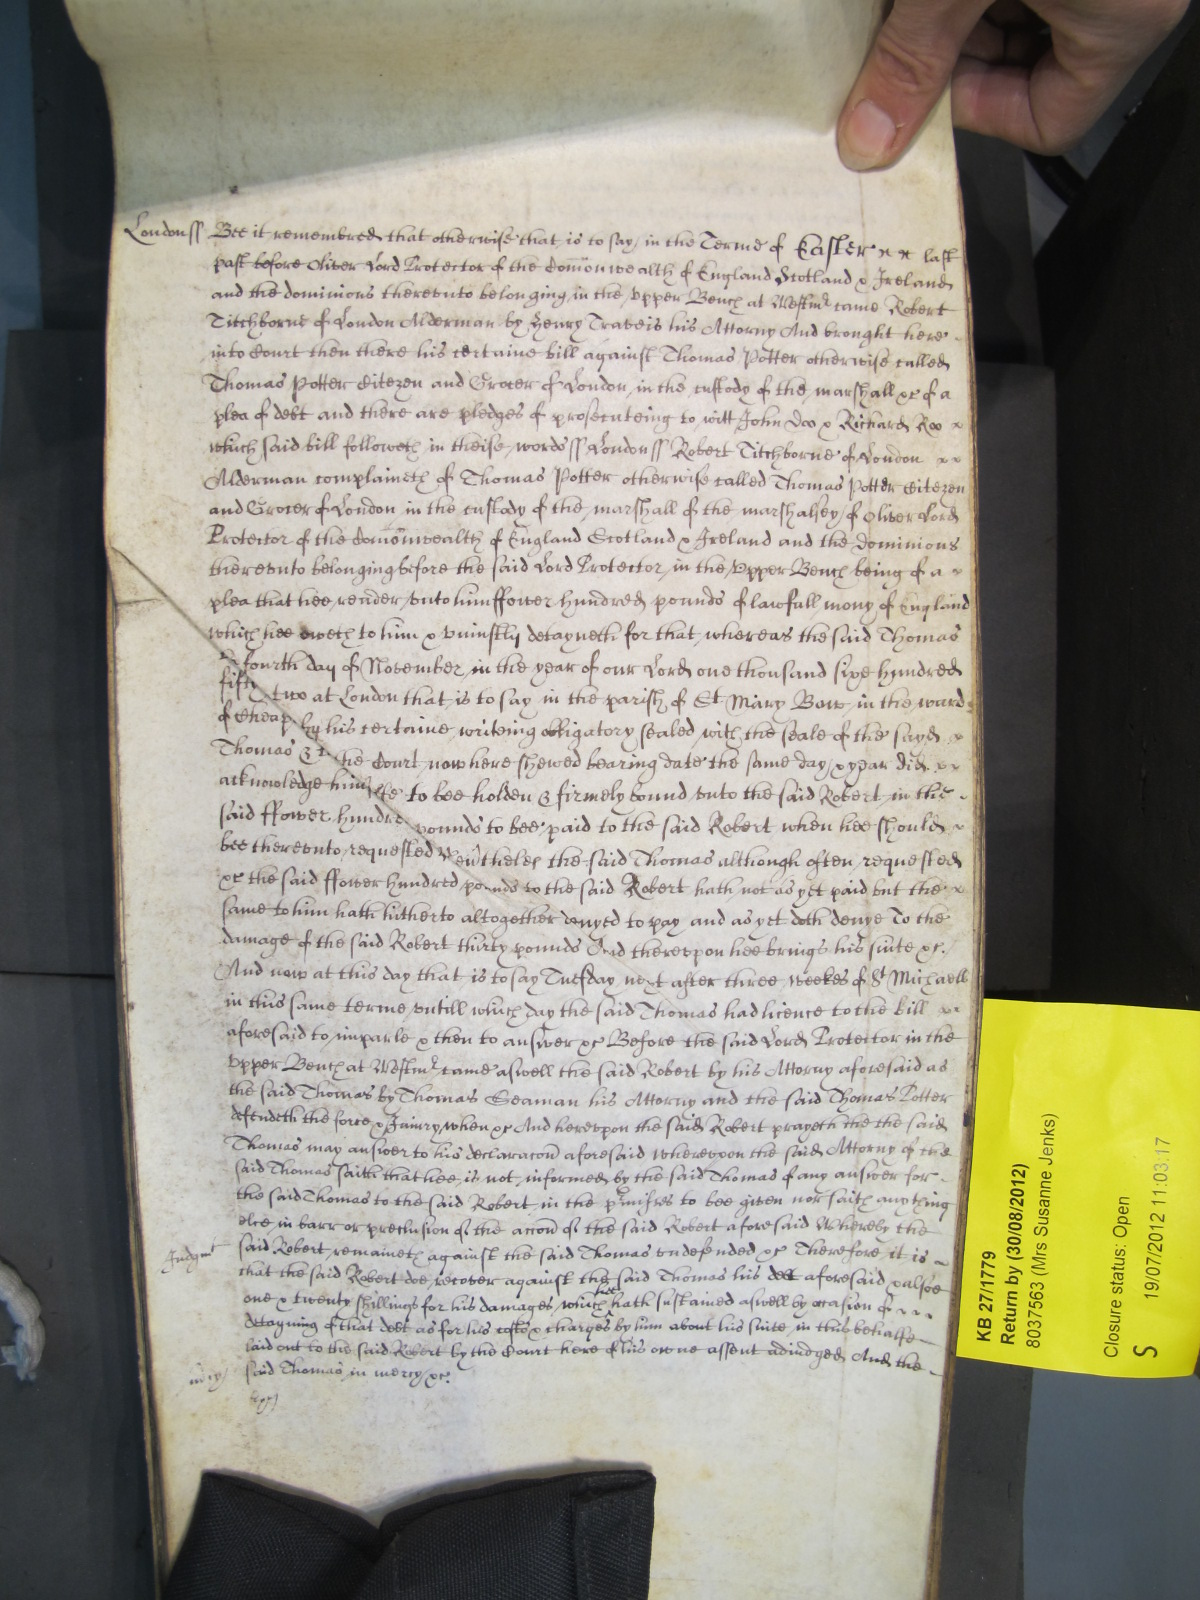 Londonss Bee it remembred that otherwise that is to say in the Terme of Easter last
past before Oliver Lord Protector of the Comonwealth of England Scotland & Ireland
and the dominions thereunto belonging in the Upper Bench at Westmr came Robert
Titchborne of London Alderman by Henry Traveis his Attorny And brought here
into Court then there his certaine bill against Thomas Potter otherwise called
Thomas Potter Citezen and Grocer of London in the custody of the marshall &c of a
plea of debt and there are pledges of prosecuteing to witt John Doo & Richard Roo
which said bill followeth in theise words ss Londonss Robert Titchborne of London
Alderman complaineth of Thomas Potter otherwise called Thomas Potter Citezen
and Grocer of London in the custody of the marshall of the marshalsey of Oliver Lord
Protector of the Comonwealth of England Scotland & Ireland and the dominions
thereunto belonging before the said Lord Protector in the Upper Bench being of a
plea that hee render unto him ffower hundred pounds of lawfull mony of England
which hee oweth to him & uniustly detayneth for that whereas the said Thomas
fourth day of November in the year of our Lord one thousand sixe hundred
fifty two at London that is to say in the parish of St Mary Bow in the ward
of Cheap by his certaine writeing obligatory sealed with the seale of the sayd
Thomas & t the Court now here shewed bearing date the same day & year did
acknowledge himselfe to bee holden & firmely bound unto the said Robert in the
said ffower hundre pounds to bee paid to the said Robert when hee should
bee thereunto requested Neverthelesse the said Thomas although often requested
&c the said ffower hundred pounds to the said Robert hath not as yet paid but the
same to him hath hitherto altogether denyed to pay and as yet doth denye To the
damage of the said Robert thirty pounds And thereupon hee brings his suite &c.
And now at this day that is to say Tuesday next after three weekes of St Michaell
in this same terme untill which day the said Thomas had licence to the bill
aforesaid to imparle & then to answer &c Before the said Lord Protector in the
Upper Bench at Westmr came aswell the said Robert by his Attorny aforesaid as
the said Thomas by Thomas Seaman his Attorny and the said Thomas Potter
defendeth the force & Iniury when &c And hereupon the said Robert prayeth the the said
Thomas may answer to his declaracon aforesaid whereupon the said Attorny of the
said Thomas saith that hee is not informed by the said Thomas of any answer for
the said Thomas to the said Robert in the pmisses to bee given nor saith anything
else in barr or preclusion of the accon of the said Robert aforesaid Whereby the
Judgmt said Robert remaineth against the said Thomas undefended &c Therefore it is
that the said Robert doe recover against the said Thomas his debt aforesaid & alsoe
one & twenty shillings for his damages which hee hath sustained aswell by occasion of
detayning of that debt as for his costs & charges by him about his suite in this behalfe
laid out to the said Robert by the Court here of his owne assent adiudged And the
mcy said Thomas in mercy &c.
KB 27/1779
Return by (30/08/2012)
8037563 (Mrs Susanne Jenks)
Closure status: Open
S 19/07/2012 11:03:17